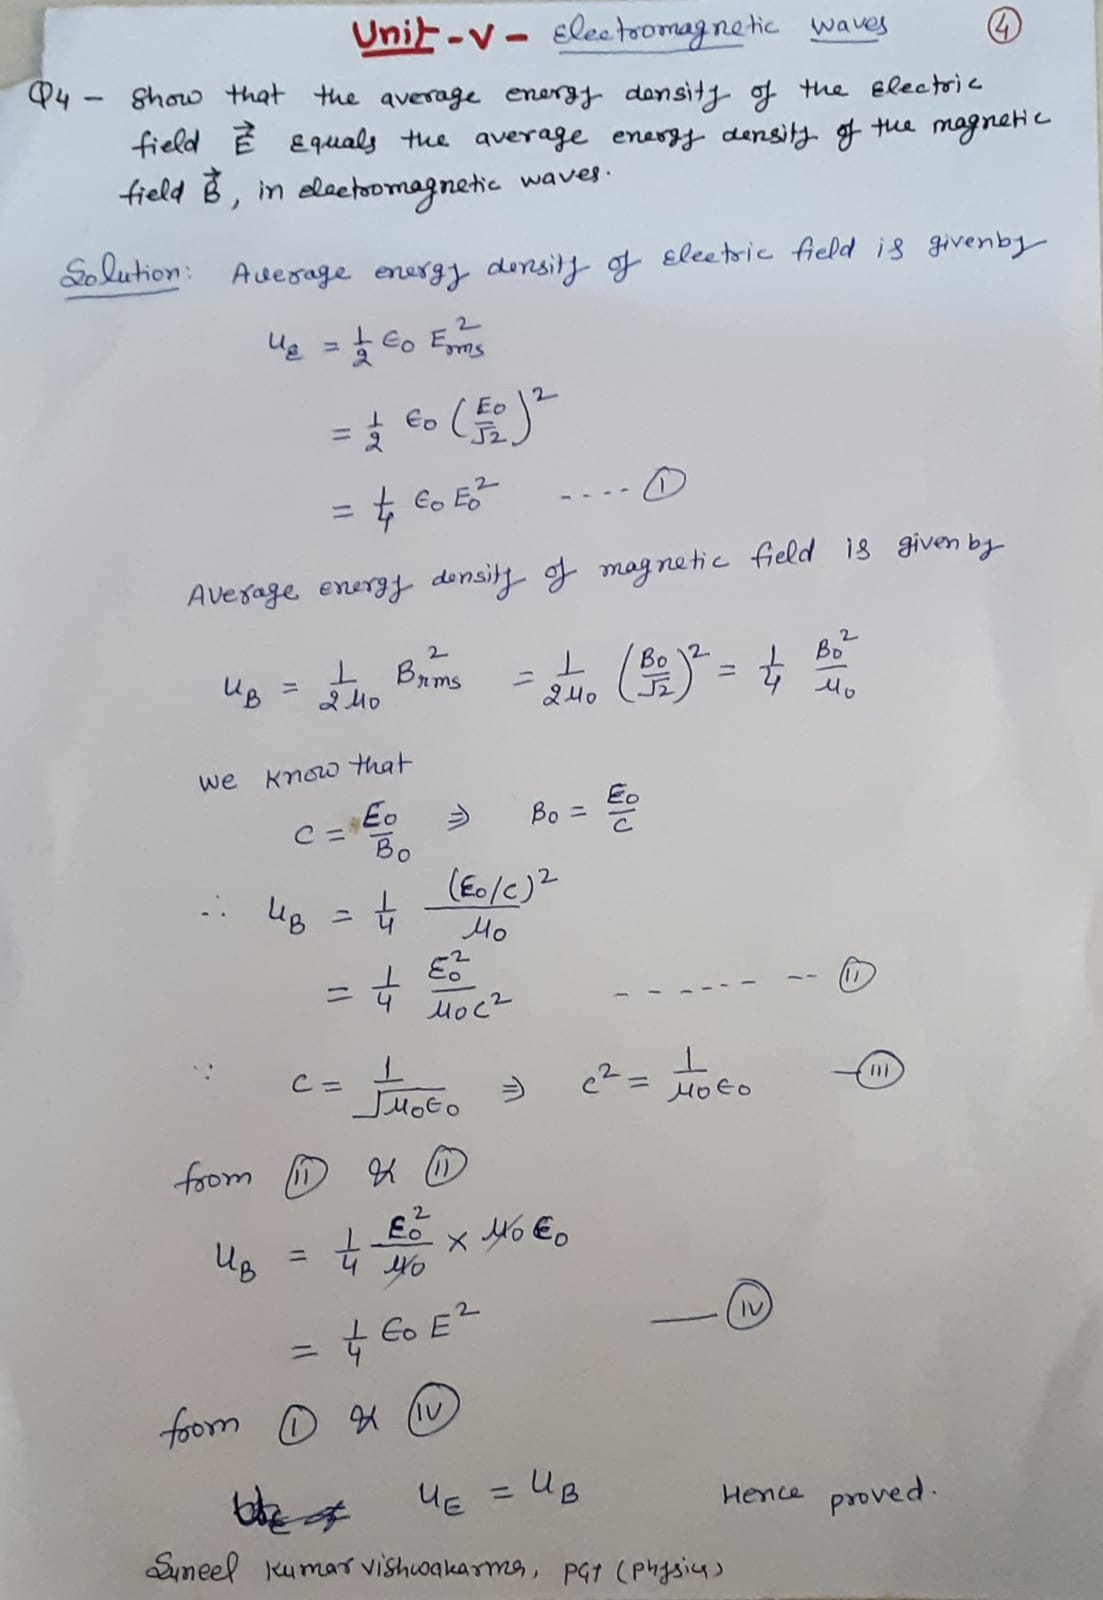 Unit-V- Electromagnetic waves ④
Q4 - Show that the average energy density of the Electric
field E⃗ Equals the average energy density of the magnetic
field B⃗, in electromagnetic waves.
Solution: Average energy density of Electric field is given by
u_e = 1/2 ε₀ E²rms
= 1/2 ε₀ (E₀/√2)²
= 1/4 ε₀ E₀² ---- Ⓘ
Average energy density of magnetic field is given by
u_B = 1/2μ₀ B²rms = 1/2μ₀ (B₀/√2)² = 1/4 B₀²/μ₀
we know that
C = E₀/B₀ ⇒ B₀ = E₀/C
∴ u_B = 1/4 (E₀/c)²/μ₀
= 1/4 E₀²/μ₀c² -------- (II)
∵ C = 1/√μ₀ε₀ ⇒ c² = 1/μ₀ε₀ — (III)
from (II) & (II)
u_B = 1/4 E₀²/μ₀ × μ₀ ε₀
= 1/4 ε₀ E² — (IV)
from (I) & (IV)
u_E = u_B Hence proved.
Suneel Kumar Vishwakarma, PGT (Physics)